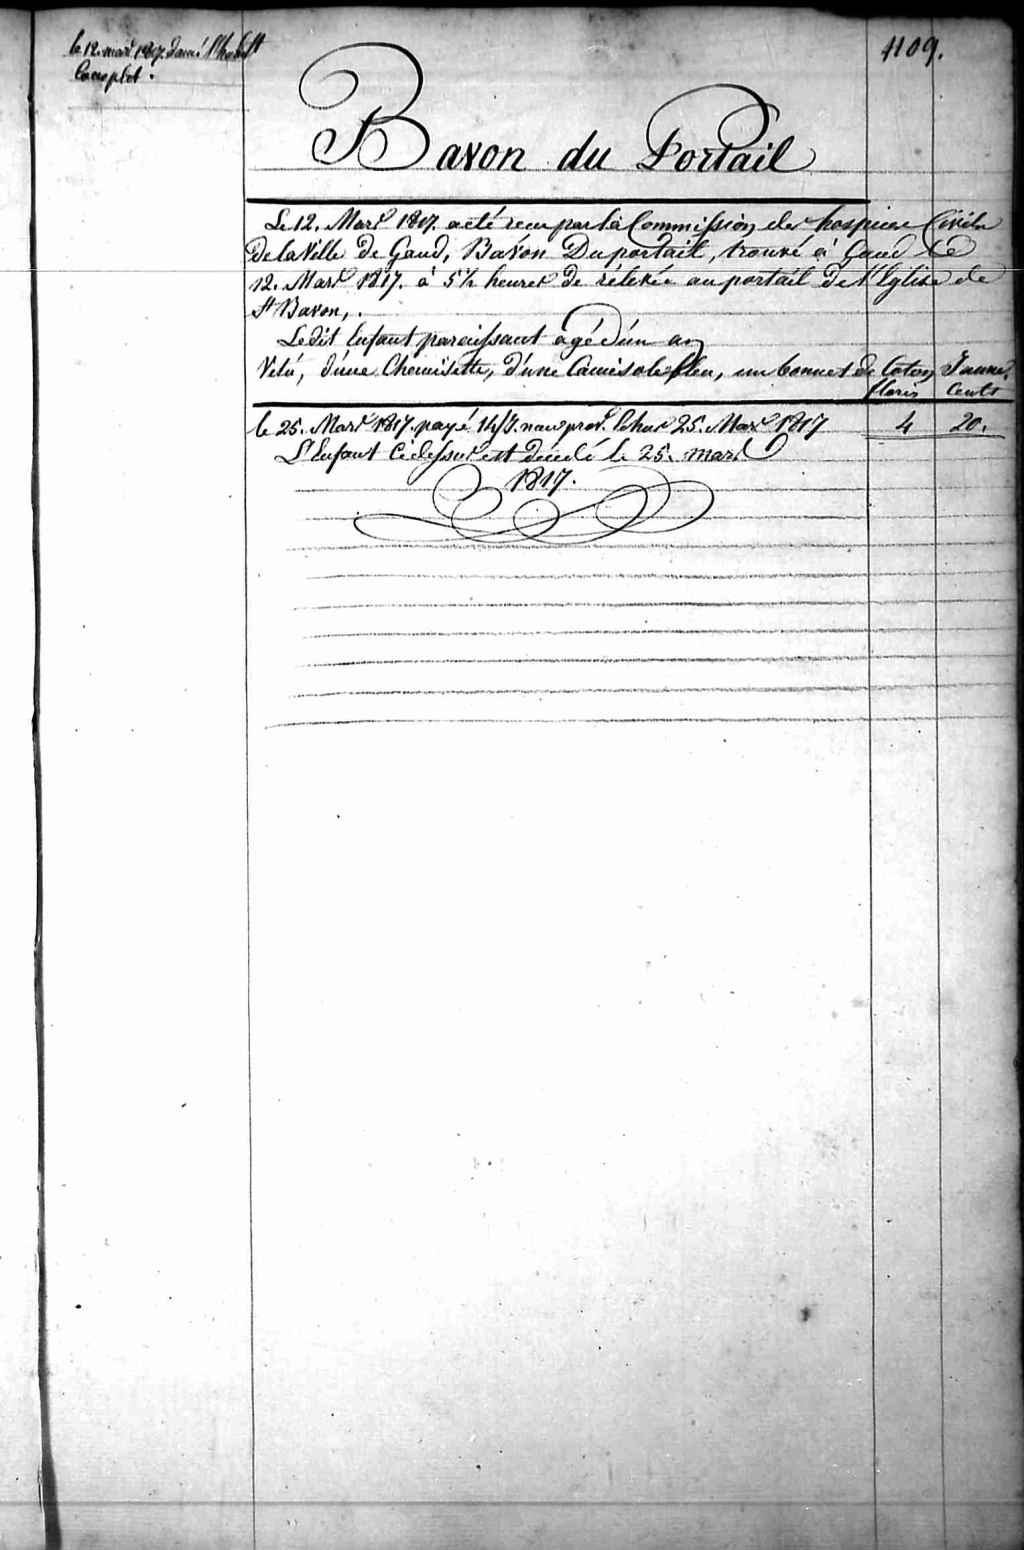 le 12. mars 1817. donné
Complet.
1109.
Bavon du Portail
Le 12. Mars 1817. a eté recu par la Commission des hospices Civils
De la Ville de Gand, Bavon Duportail, trouvé à Gand le
12. Mars 1817. à 5½ heures de rélevée au portail de l'Eglise de
St Bavon,.
Le dit Enfant paroissant agé d'un an
Vétú, d'une Chemisette, d'une Camisole bleu, un bonnet de Coton Jaune.
floris Cents
le 25. Mars 1817. payé 25. Mars 1817 4 20.
L'Enfant Cidessus est décédé le 25. mars
1817.